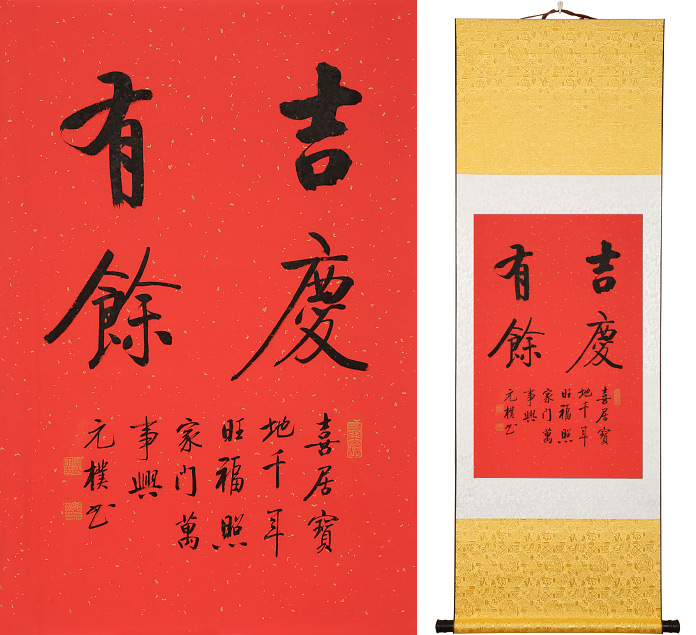 吉慶
有餘
喜居寶
地千年
旺福照
家門萬
事興
元樸书
吉慶
有餘
喜居寶
地千年
旺福照
家門萬
事興
元樸书